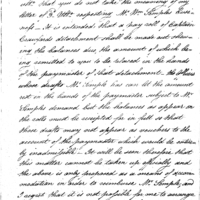 that you do not take the meaning of my
letter of 3 Oct. respecting Mr. Wm. Temple's
It is intended that a pay roll of Captain
Crawfords detachment shall be made out shew-
ing the balances due, the amount of which be
ing remitted to you to be placed in the hands
of the paymaster of that detachment. the
whose drafts Mr. Temple has can let the amount
rest in the hands of the paymaster subject to Mr.
Temple's demand but the balances as appear on
the rolls must be receipted for in full so that
these drafts may not appear as vouchers to the
account of the paymaster which would be entire-
ly inadmissible. It will be seen therefore that
this matter cannot be taken up officially and
the above is only proposed as a means of accom
modation in order to reimburse Mr. Temple, and
I regret that it is not possible for me to arrange